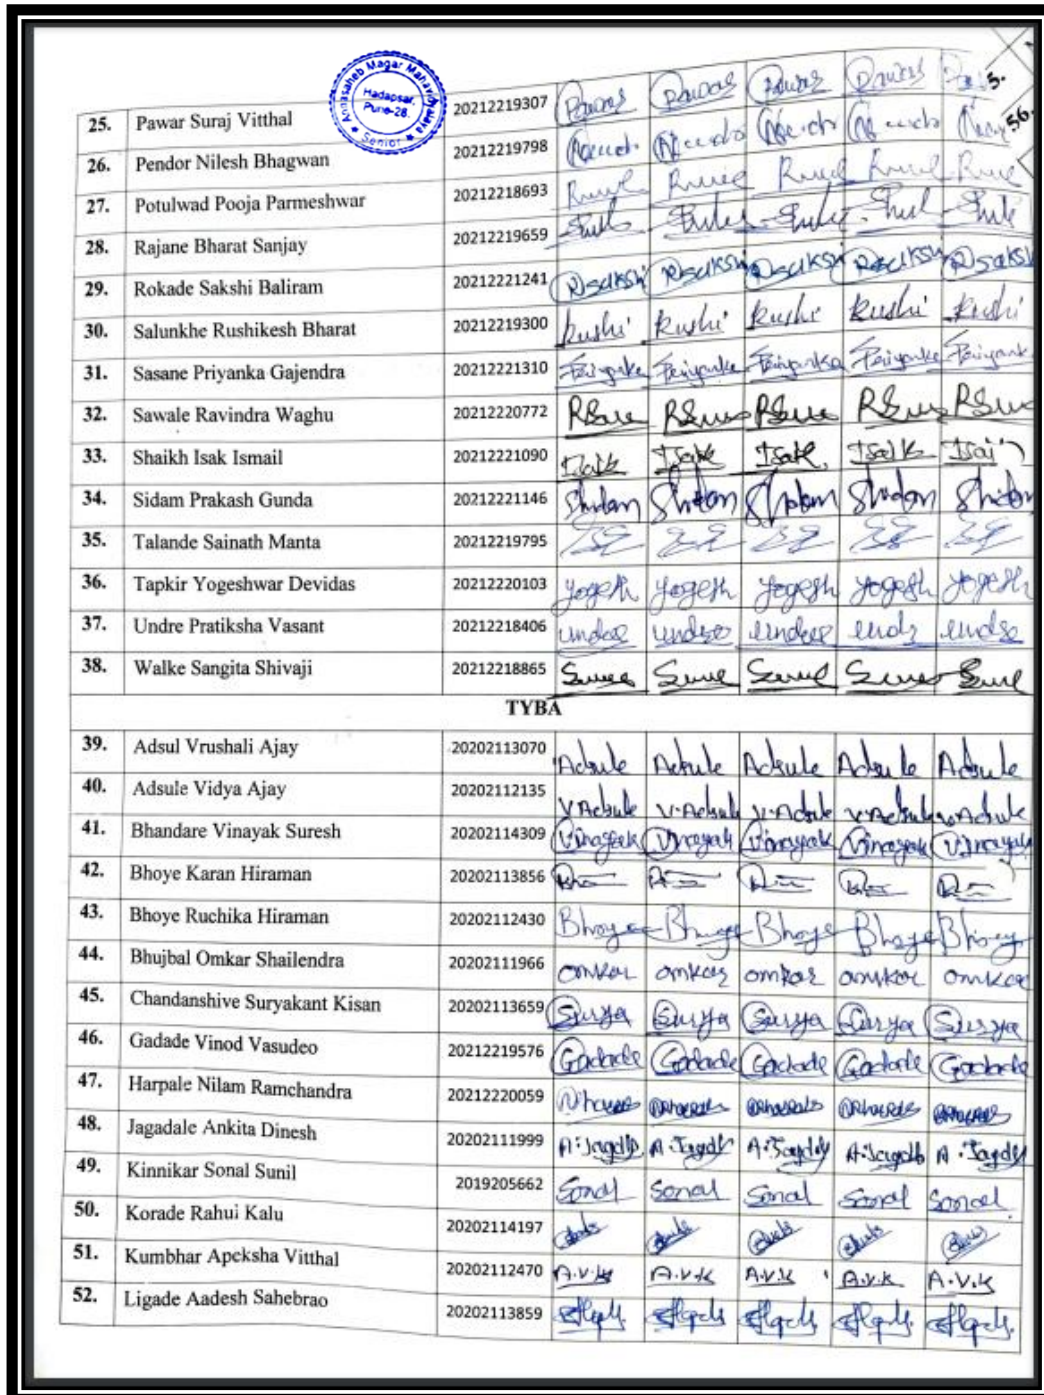 Annasaheb Magar Mahavidyalaya
Hadapsar,
Pune-28.
★ Senior ★
5.
56.
25. Pawar Suraj Vitthal 20212219307 Pawar Pawar Pawar Pawar
26. Pendor Nilesh Bhagwan 20212219798
27. Potulwad Pooja Parmeshwar 20212218693
28. Rajane Bharat Sanjay 20212219659
29. Rokade Sakshi Baliram 20212221241 Rsakshi Rsakshi Rsakshi Rsakshi Rsaksh
30. Salunkhe Rushikesh Bharat 20212219300 Rushi Rushi Rushi Rushi Rushi
31. Sasane Priyanka Gajendra 20212221310 Priyanka Priyanka Priyanka Priyanka Priyank
32. Sawale Ravindra Waghu 20212220772
33. Shaikh Isak Ismail 20212221090 Isak Isak Isak Isak
34. Sidam Prakash Gunda 20212221146 Shidam Shidam Shidam Shidam Shidam
35. Talande Sainath Manta 20212219795
36. Tapkir Yogeshwar Devidas 20212220103 Yogesh Yogesh Yogesh Yogesh Yogesh
37. Undre Pratiksha Vasant 20212218406 undre undre undre undre
38. Walke Sangita Shivaji 20212218865
TYBA
39. Adsul Vrushali Ajay 20202113070 Adsule Adsule Adsule Adsule Adsule
40. Adsule Vidya Ajay 20202112135 V.Adsule V.Adsule V.Adsule V.Adsule V.Adsule
41. Bhandare Vinayak Suresh 20202114309 Vinayak Vinayak Vinayak Vinayak Vinayak
42. Bhoye Karan Hiraman 20202113856
43. Bhoye Ruchika Hiraman 20202112430 Bhoye Bhoye Bhoye Bhoye Bhoye
44. Bhujbal Omkar Shailendra 20202111966 omkar omkar omkar omkar omkar
45. Chandanshive Suryakant Kisan 20202113659 Surya Surya Surya Surya Surya
46. Gadade Vinod Vasudeo 20212219576 Gadade Gadade Gadade Gadade Gadade
47. Harpale Nilam Ramchandra 20212220059
48. Jagadale Ankita Dinesh 20202111999 A.Jagdle A.Jagdle A.Jagdle A.Jagdle A.Jagdle
49. Kinnikar Sonal Sunil 2019205662 Sonal Sonal Sonal Sonal Sonal
50. Korade Rahui Kalu 20202114197
51. Kumbhar Apeksha Vitthal 20202112470 A.V.K A.V.K A.V.K A.V.K A.V.K
52. Ligade Aadesh Sahebrao 20202113859